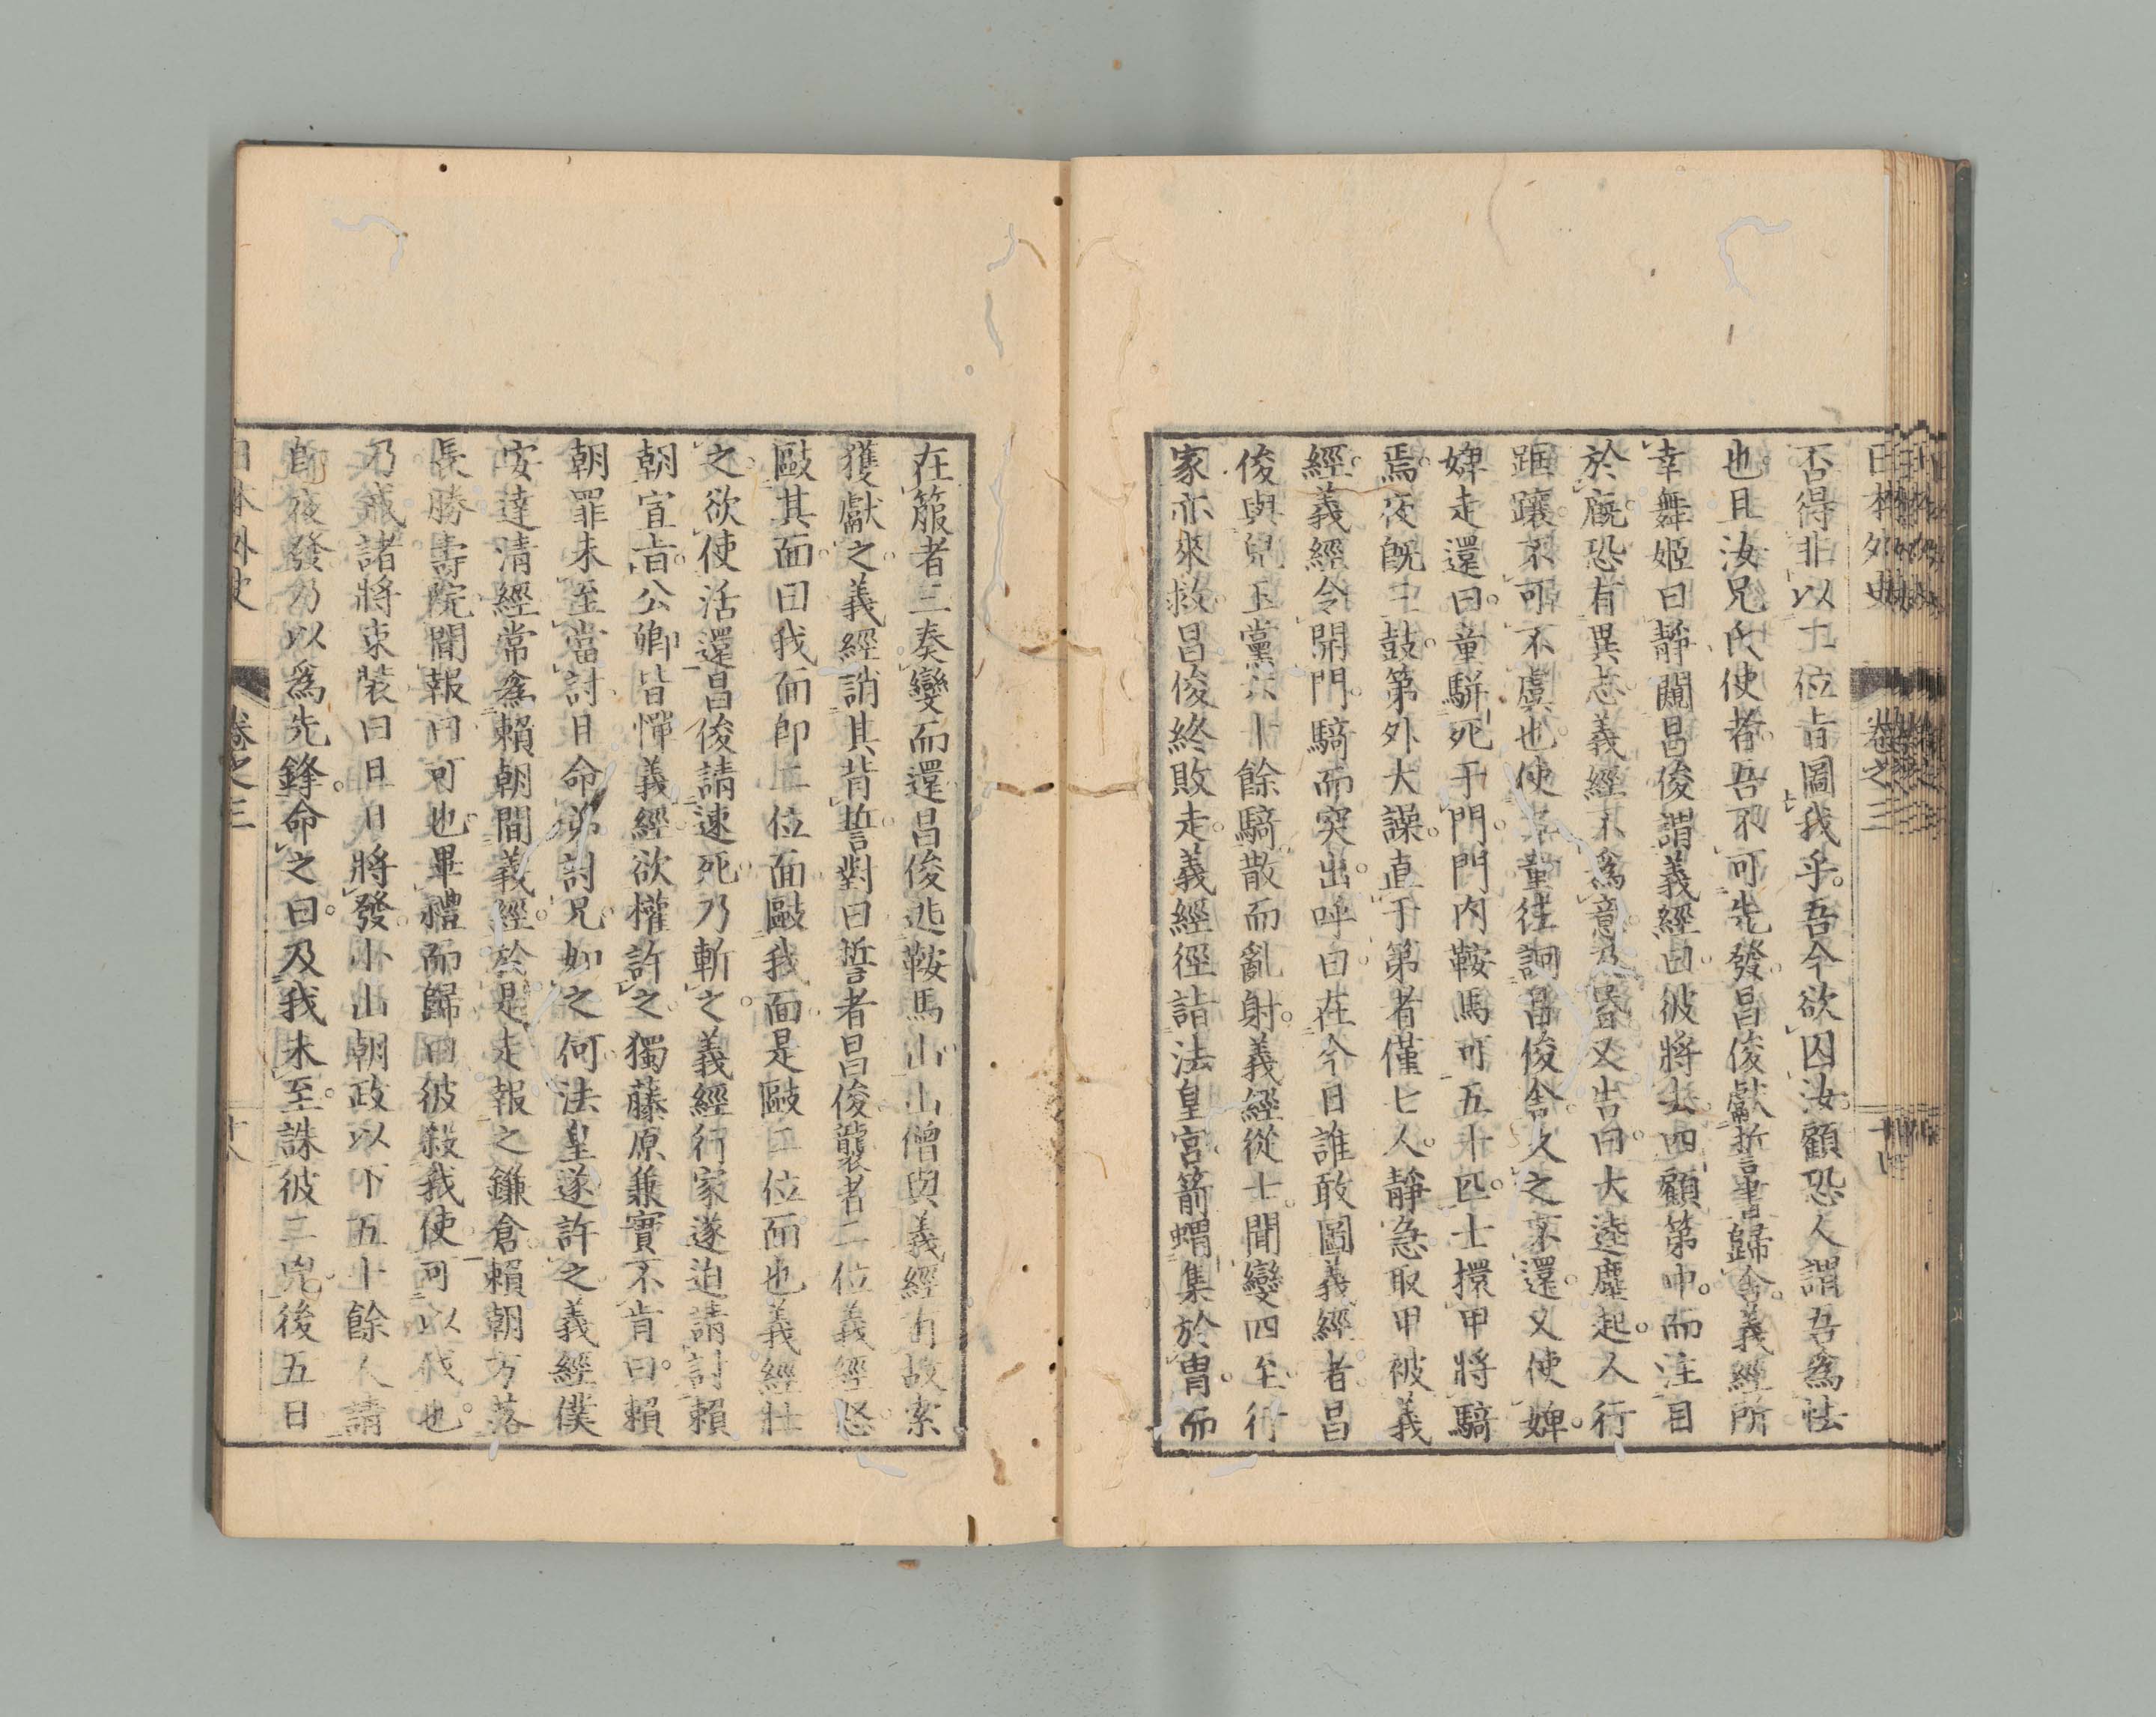 日本外史 卷之三
否得非以二位旨圖我乎吾今欲囚汝顧恐人謂吾爲怯
也且汝兄氏使者吾不可先發昌俊獻誓書歸舍義經所
幸舞姬曰靜闚昌俊謂義經曰彼將去四顧第中而注目
於廐恐有異志義經不爲意及昏又告曰大逵塵起人行
踞躟不可不虞也使童往詗昌俊舍久之不還又使婢
婢走還曰童駢死于門門內鞍馬可五十匹士擐甲將騎
焉夜既二鼓第外大譟直于第者僅七人靜急取甲被義
經義經令開門騎而突出呼曰在今日誰敢圖義經者昌
俊與兒玉黨六十餘騎散而亂射義經從士聞變四至行
家亦來救昌俊終敗走義經徑詣法皇宮箭蝟集於冑而
在箙者三奏變而還昌俊逃鞍馬山山僧與義經有故索
獲獻之義經誚其背誓對曰誓者昌俊襲者二位義經怒
毆其面曰我面卽二位面毆我面是毆二位面也義經壯
之欲使活還昌俊請速死乃斬之義經行家遂迫請討賴
朝宣旨公卿皆憚義經欲權許之獨藤原兼實不肯曰賴
朝罪未至當討且命弟討兄如之何法皇遂許之義經僕
安達清經常爲賴朝間義經於是走報之鎌倉賴朝方落
長勝壽院聞報曰可也畢禮而歸曰彼殺我使可以伐也
乃戒諸將束裝曰旦日將發小山朝政以下五十餘人請
卽夜發乃以爲先鋒命之曰及我未至誅彼二兇後五日
日本外史 卷之三